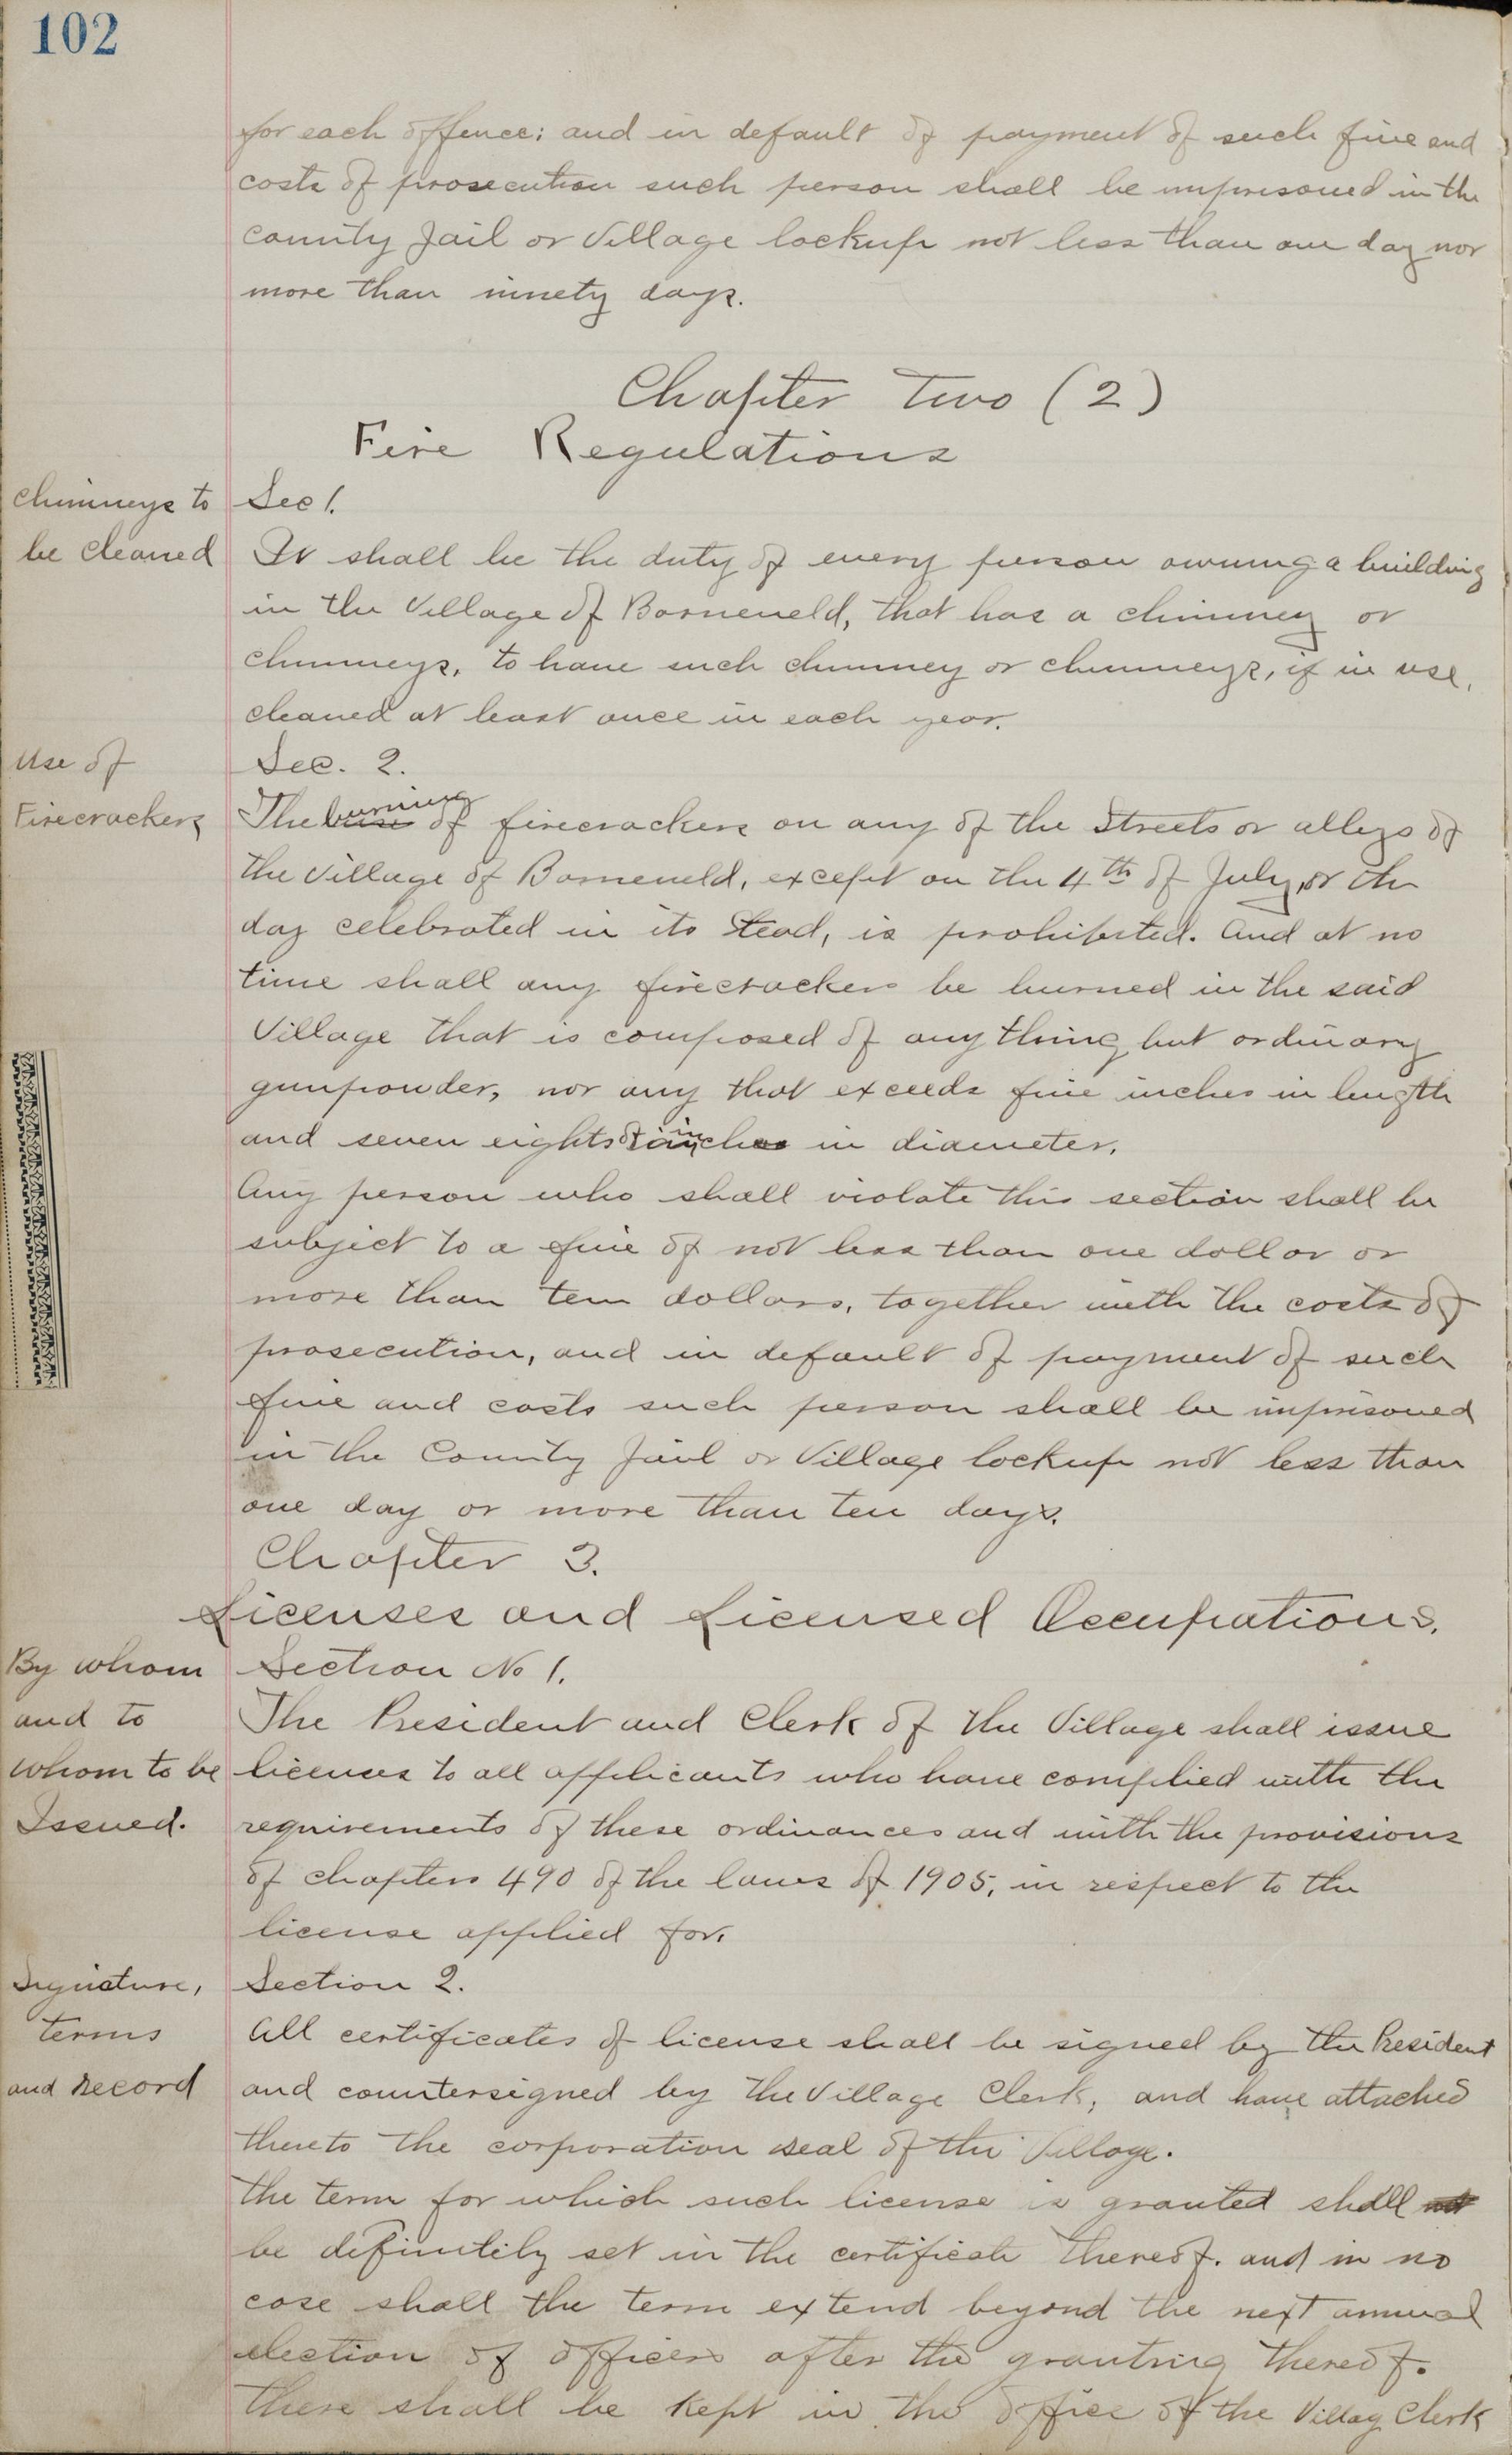 102
for each offence; and in default of payment of such fine and
costs of prosecution such person shall be imprisoned in the
County Jail or Village lockup not less than one day nor
more than ninety days.
Chapter Two (2)
Fire Regulations
Chimneys to
be cleaned
Sec 1.
It shall be the duty of every person owning a building
in the Village of Barneveld, that has a chimney or
chimneys, to have such chimney or chimneys, if in use,
cleaned at least once in each year.
Use of
Firecrackers
Sec. 2.
The burning of firecrackers on any of the Streets or alleys of
the Village of Barneveld, except on the 4th of July, or the
day celebrated in its stead, is prohibited. And at no
time shall any firecrackers be burned in the said
Village that is composed of any thing but ordinary
gunpowder, nor any that exceeds five inches in length
and seven eights of an inch in diameter.
Any person who shall violate this section shall be
subject to a fine of not less than one dollar or
more than ten dollars, together with the costs of
prosecution, and in default of payment of such
fine and costs such person shall be imprisoned
in the County Jail or Village lockup not less than
one day or more than ten days.
Chapter 3.
Licenses and Licensed Occupations.
By whom
and to
whom to be
Issued.
Section No 1.
The President and Clerk of the Village shall issue
licenses to all applicants who have complied with the
requirements of these ordinances and with the provisions
of chapters 490 of the laws of 1905, in respect to the
license applied for.
Signature,
terms
and Record
Section 2.
All certificates of license shall be signed by the President
and countersigned by the Village Clerk, and have attached
thereto the corporation seal of the Village.
The term for which such license is granted shall
be definitely set in the certificate thereof. and in no
case shall the term extend beyond the next annual
election of officers after the granting thereof.
there shall be kept in the office of the Villag Clerk